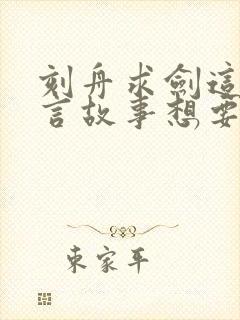 刻舟求劍這
言故事想要
東家平